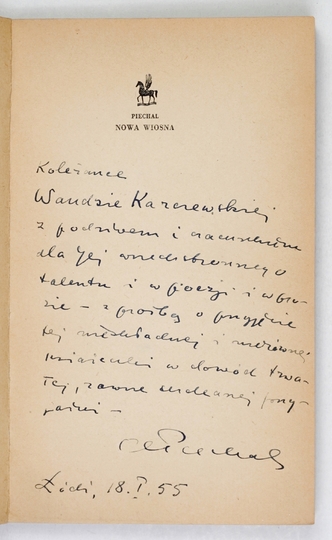 PIECHAL
NOWA WIOSNA
Koleżance
Wandzie Karczewskiej
z podziwem i szacunkiem
dla Jej wszechstronnego
talentu i w poezji i w pro-
zie – z prośbą o przyjęcie
tej nieskładnej i
książeczki w dowód trwa-
łej, zawsze serdecznej przy-
jaźni –
Piechal
Łódź, 18.I.55